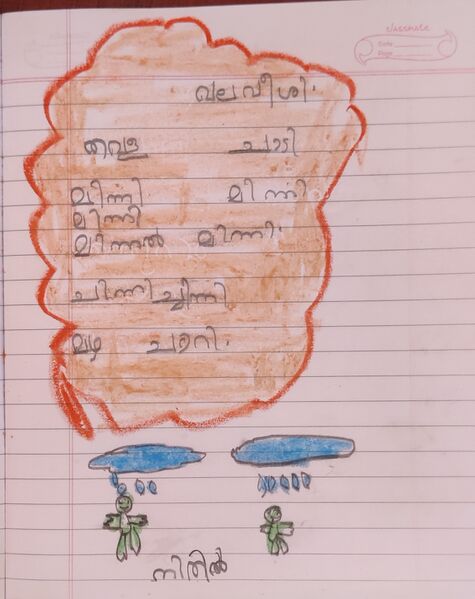 classmate
Date
Page
വലവീശി.
തവള ചാടി
മിന്നി മിന്നി
മിന്നി
മിന്നൽ മിന്നി.
ചിന്നി ചിന്നി
മഴ ചാറി.